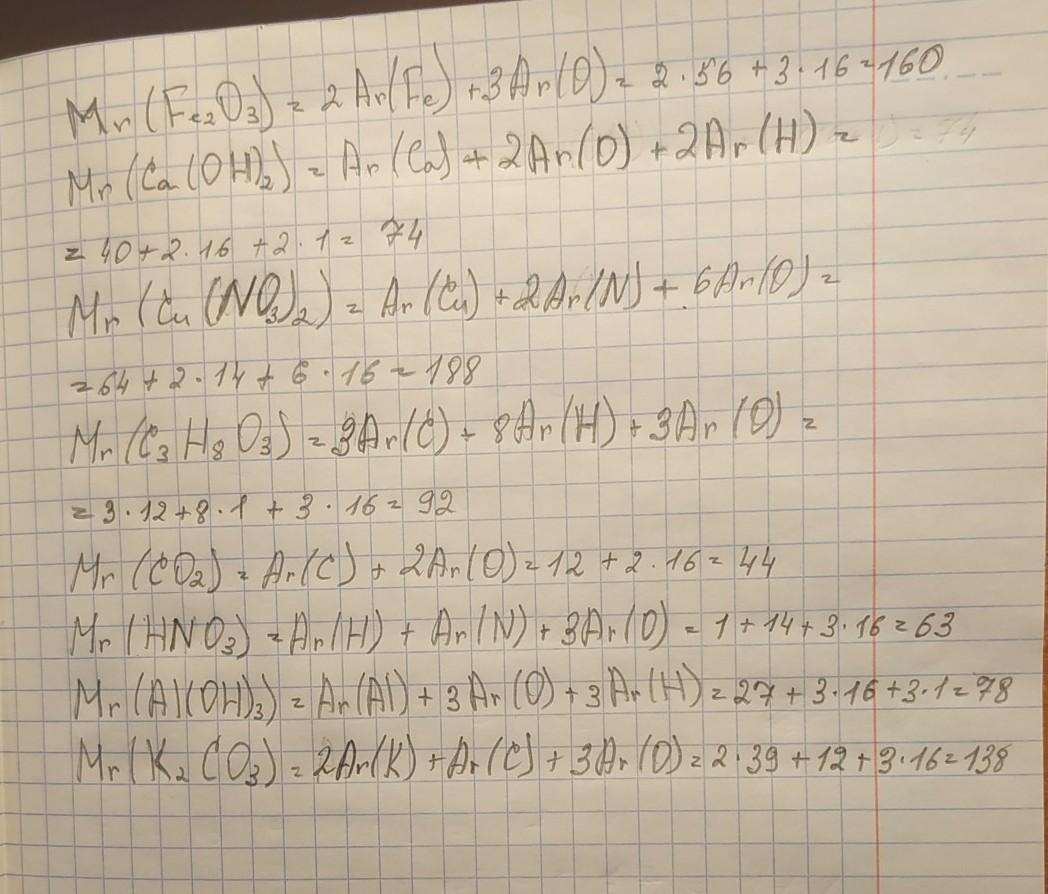 Mr (Fe₂O₃) = 2Ar(Fe) + 3Ar(O) = 2 · 56 + 3 · 16 = 160
Mr (Ca(OH)₂) = Ar(Ca) + 2Ar(O) + 2Ar(H) =
= 40 + 2 · 16 + 2 · 1 = 74
Mr (Cu(NO₃)₂) = Ar(Cu) + 2Ar(N) + 6Ar(O) =
= 64 + 2 · 14 + 6 · 16 = 188
Mr (C₃H₈O₃) = 3Ar(C) + 8Ar(H) + 3Ar(O) =
= 3 · 12 + 8 · 1 + 3 · 16 = 92
Mr (CO₂) = Ar(C) + 2Ar(O) = 12 + 2 · 16 = 44
Mr (HNO₃) = Ar(H) + Ar(N) + 3Ar(O) = 1 + 14 + 3 · 16 = 63
Mr (Al(OH)₃) = Ar(Al) + 3Ar(O) + 3Ar(H) = 27 + 3 · 16 + 3 · 1 = 78
Mr (K₂CO₃) = 2Ar(K) + Ar(C) + 3Ar(O) = 2 · 39 + 12 + 3 · 16 = 138